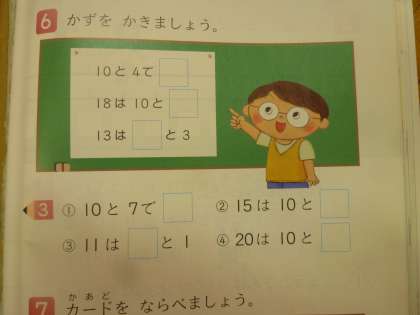 6 かずを かきましょう。
10と 4で
18は 10と
13は と 3
3 ① 10と 7で ② 15は 10と
③ 11は と 1 ④ 20は 10と
かあど
7 カードを ならべましょう。